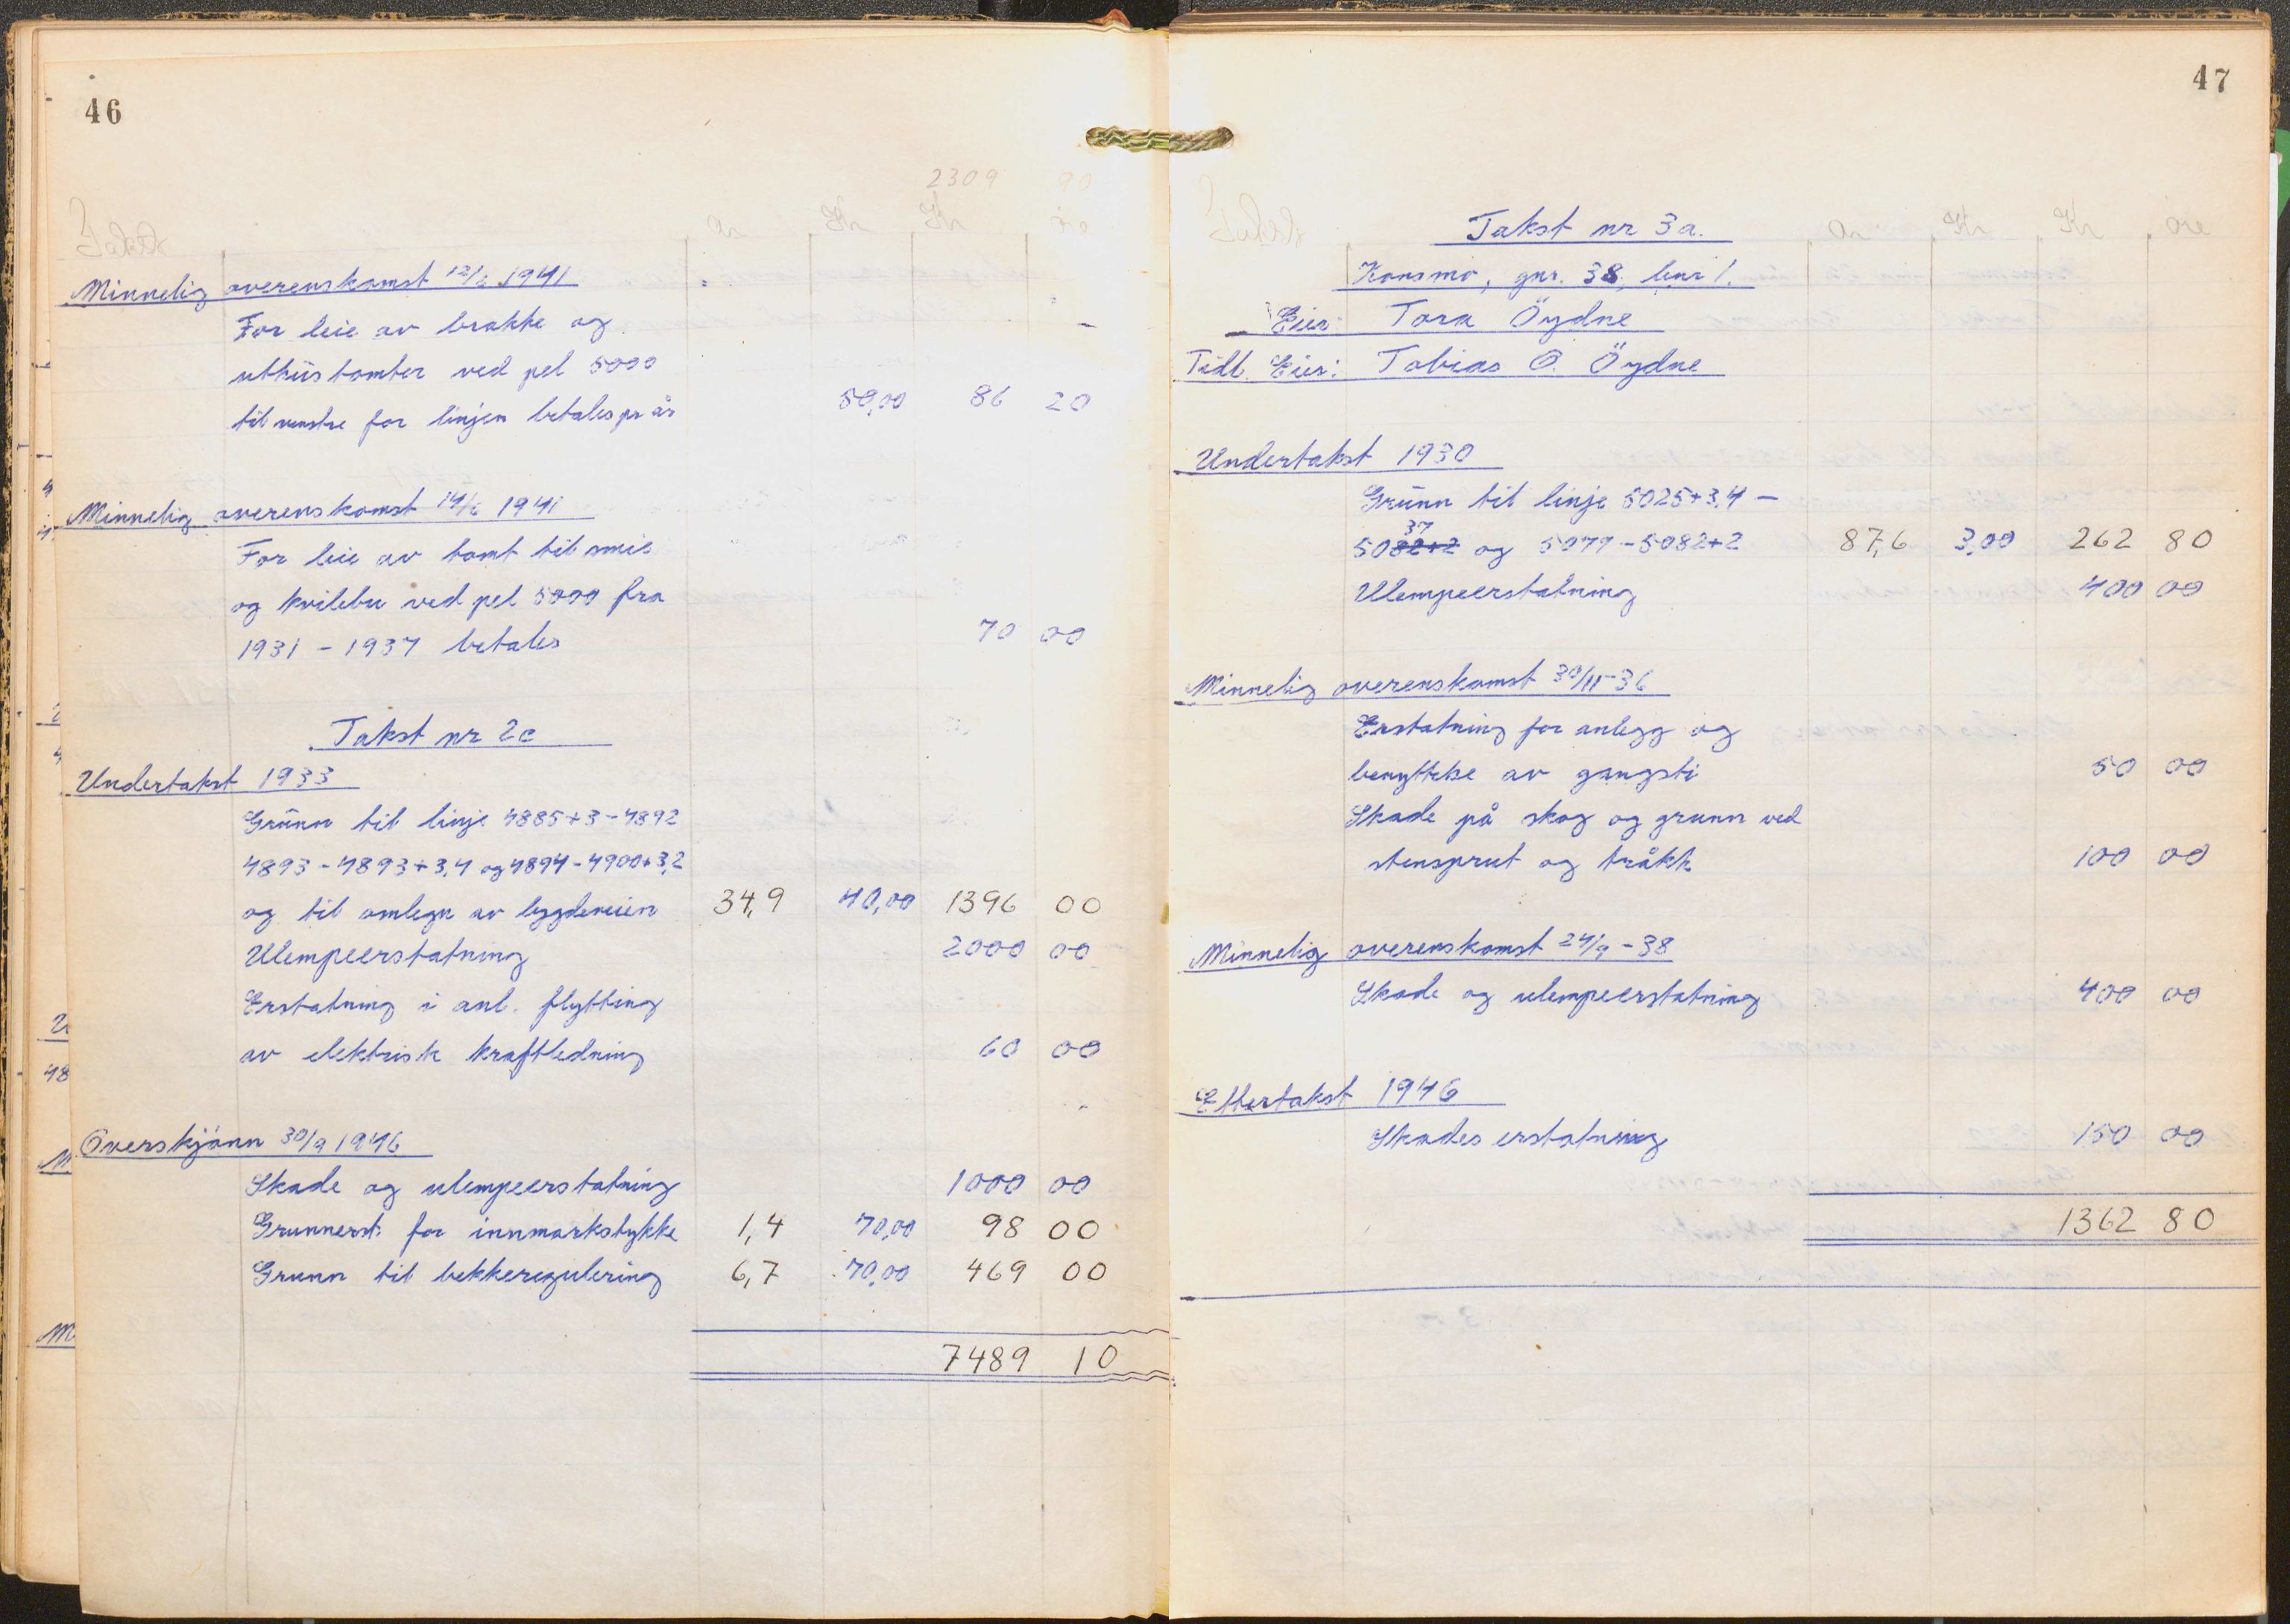 46
2309 90
Takst ar Kr Kr øre
Minnelig overenskomst 12/6 1941
For leie av brakke og
uthustomter ved pel 5000
til venstre for linjen betales pr år 50,00 86 20
Minnelig overenskomst 14/6 1941
For leie av tomt til smie
og kvilebu ved pel 5000 fra
1931 - 1937 betales 70 00
Takst nr 2c
Undertakst 1933
Grunn til linje 4885+3-4892
4893-4893+3,4 og 4894-4900+3,2
og til omlegn av bygdeveien 34,9 40,00 1396 00
Ulempeerstatning 2000 00
Erstatning i anl. flytting
av elektrisk kraftledning 60 00
Overskjönn 30/9 1946
Skade og ulempeerstatning 1000 00
Grunnerst. for innmarkstykke 1,4 70,00 98 00
Grunn til bekkeregulering 6,7 70,00 469 00
7489 10
47
Takst ar Kr Kr øre
Takst nr 3a.
Konsmo, gnr. 38, bnr 1.
Eier: Tora Öydne
Tidl. Eier: Tobias O. Öydne
Undertakst 1930
Grunn til linje 5025+3,4 -
37
5082+2 og 5079-5082+2 87,6 3,00 262 80
Ulempeerstatning 400 00
Minnelig overenskomst 30/11-36
Erstatning for anlegg og
benyttelse av gangsti 50 00
Skade på skog og grunn ved
stensprut og tråkk 100 00
Minnelig overenskomst 24/9-38
Skade og ulempeerstatning 400 00
Ettertakst 1946
Skadeserstatning 150 00
1362 80